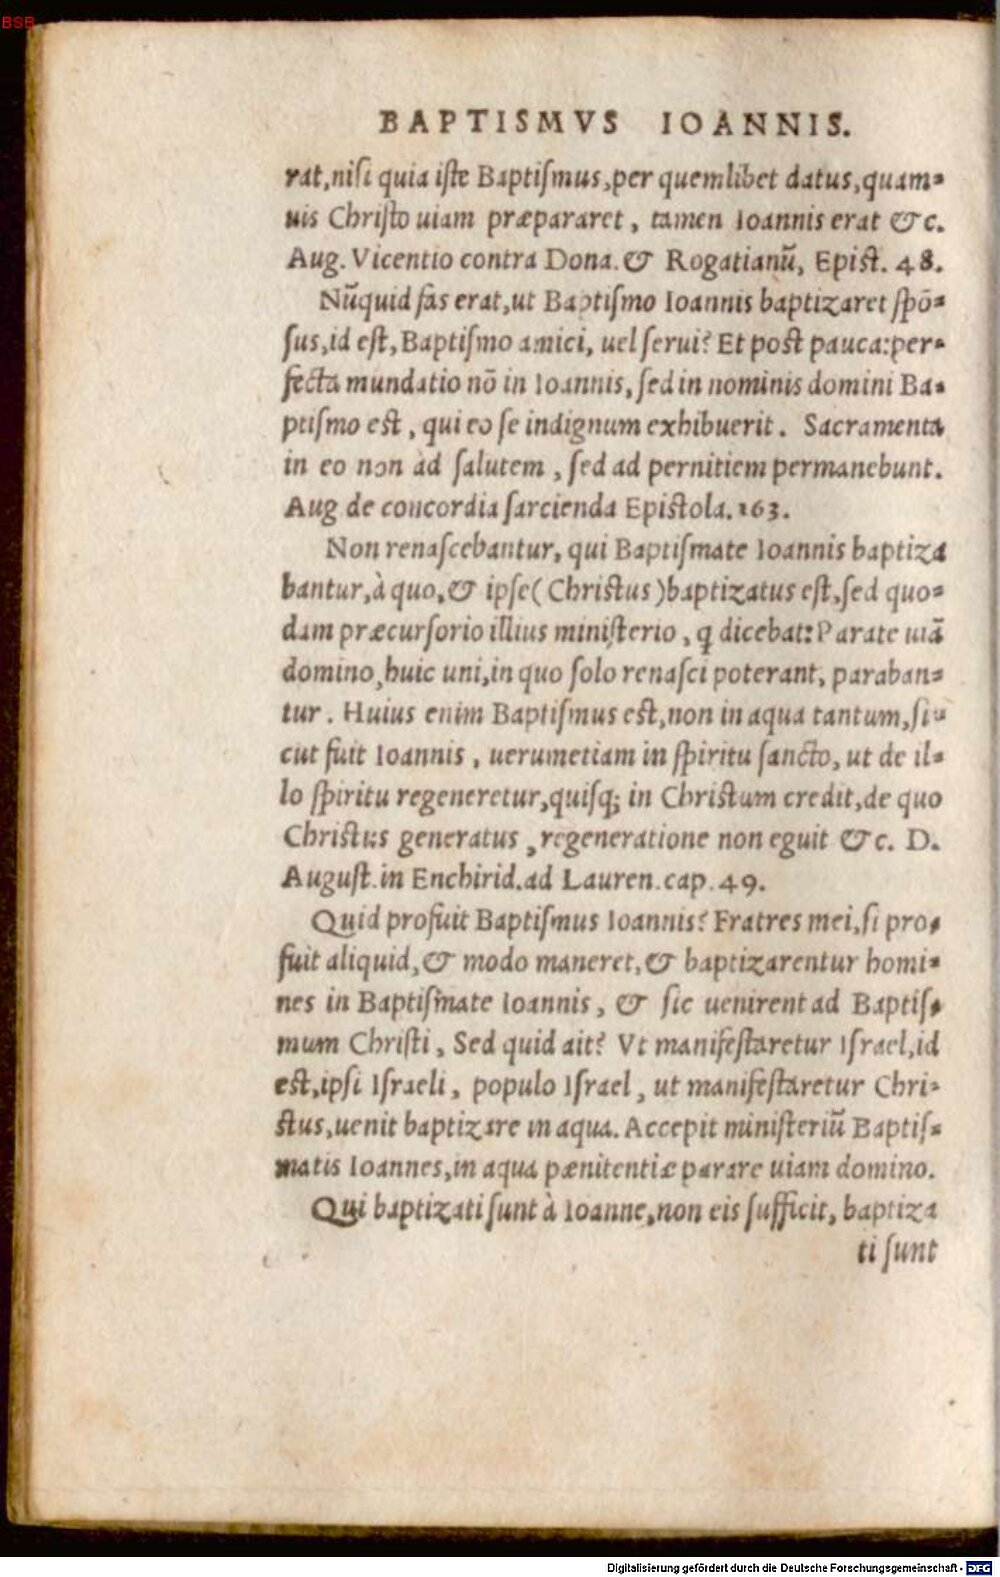 BSB
BAPTISMVS IOANNIS.
rat, nisi quia iste Baptiſmus, per quemlibet datus, quam-
uis Chriſto uiam præpararet, tamen Ioannis erat & c.
Aug. Vicentio contra Dona. & Rogatianū, Epist. 48.
Nūquid fas erat, ut Baptiſmo Ioannis baptizaret ſpō-
ſus, id eſt, Baptiſmo amici, uel ſerui? Et poſt pauca: per-
fecta mundatio nō in Ioannis, ſed in nominis domini Ba-
ptiſmo eſt, qui eo ſe indignum exhibuerit. Sacramenta
in eo non ad ſalutem, ſed ad pernitiem permanebunt.
Aug de concordia ſarcienda Epiſtola. 163.
Non renaſcebantur, qui Baptiſmate Ioannis baptiza
bantur, à quo, & ipſe (Chriſtus) baptizatus eſt, ſed quo-
dam præcurſorio illius miniſterio, ꝗ dicebat: Parate uiā
domino, huic uni, in quo ſolo renaſci poterant, paraban-
tur. Huius enim Baptiſmus eſt, non in aqua tantum, ſi-
cut fuit Ioannis, uerumetiam in ſpiritu ſancto, ut de il-
lo ſpiritu regeneretur, quiſq; in Chriſtum credit, de quo
Chriſtus generatus, regeneratione non eguit & c. D.
Auguſt. in Enchirid. ad Lauren. cap. 49.
Quid profuit Baptiſmus Ioannis? Fratres mei, ſi pro-
fuit aliquid, & modo maneret, & baptizarentur homi-
nes in Baptiſmate Ioannis, & ſic uenirent ad Baptiſ-
mum Chriſti, Sed quid ait? Vt manifeſtaretur Iſrael, id
eſt, ipſi Iſraeli, populo Iſrael, ut manifeſtaretur Chri-
ſtus, uenit baptizare in aqua. Accepit miniſteriū Baptiſ-
matis Ioannes, in aqua pænitentiæ parare uiam domino.
Qui baptizati ſunt à Ioanne, non eis ſufficit, baptiza
ti ſunt
Digitalisierung gefördert durch die Deutsche Forschungsgemeinschaft - DFG